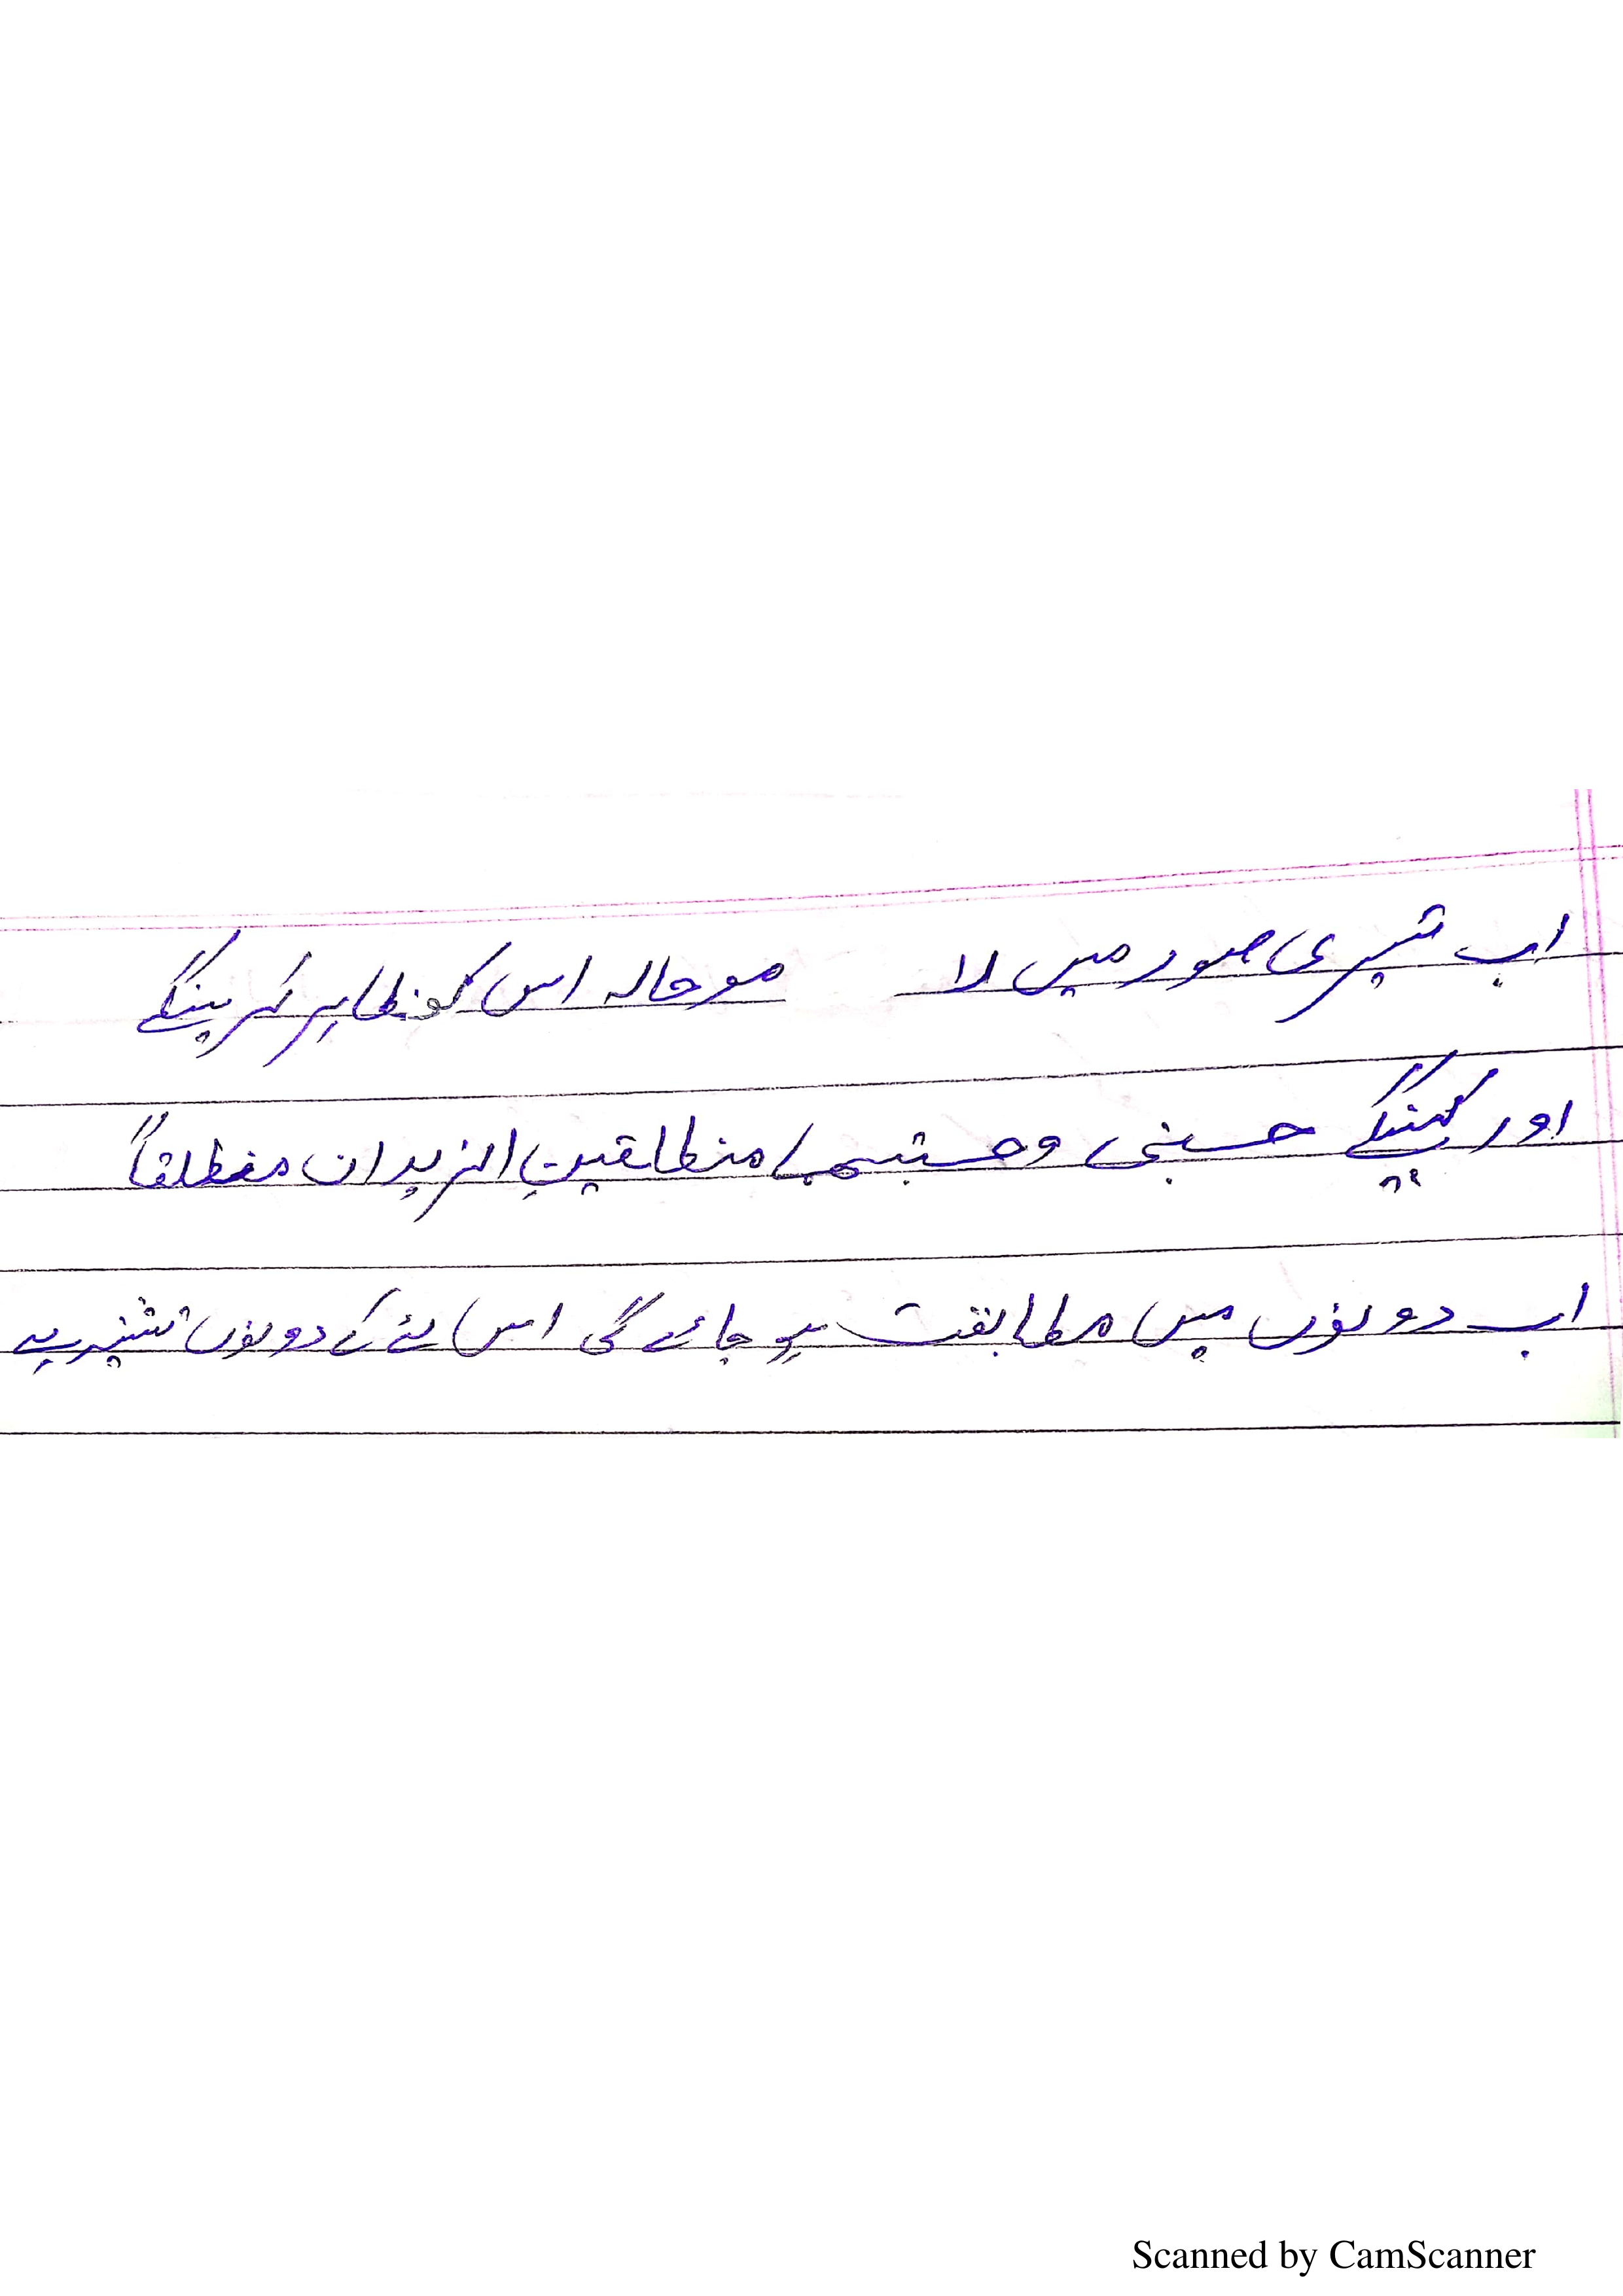 اب تیسری صور میں لا موحالہ اس کو ظاہر کرینگے
اور کہینگے حسبنی وحسبتہما منطلقین الزیدان منطلقاً
اب دونوں میں مطابقت ہو جائے گی اس لئے کے دونوں تثنیہ ہے
Scanned by CamScanner